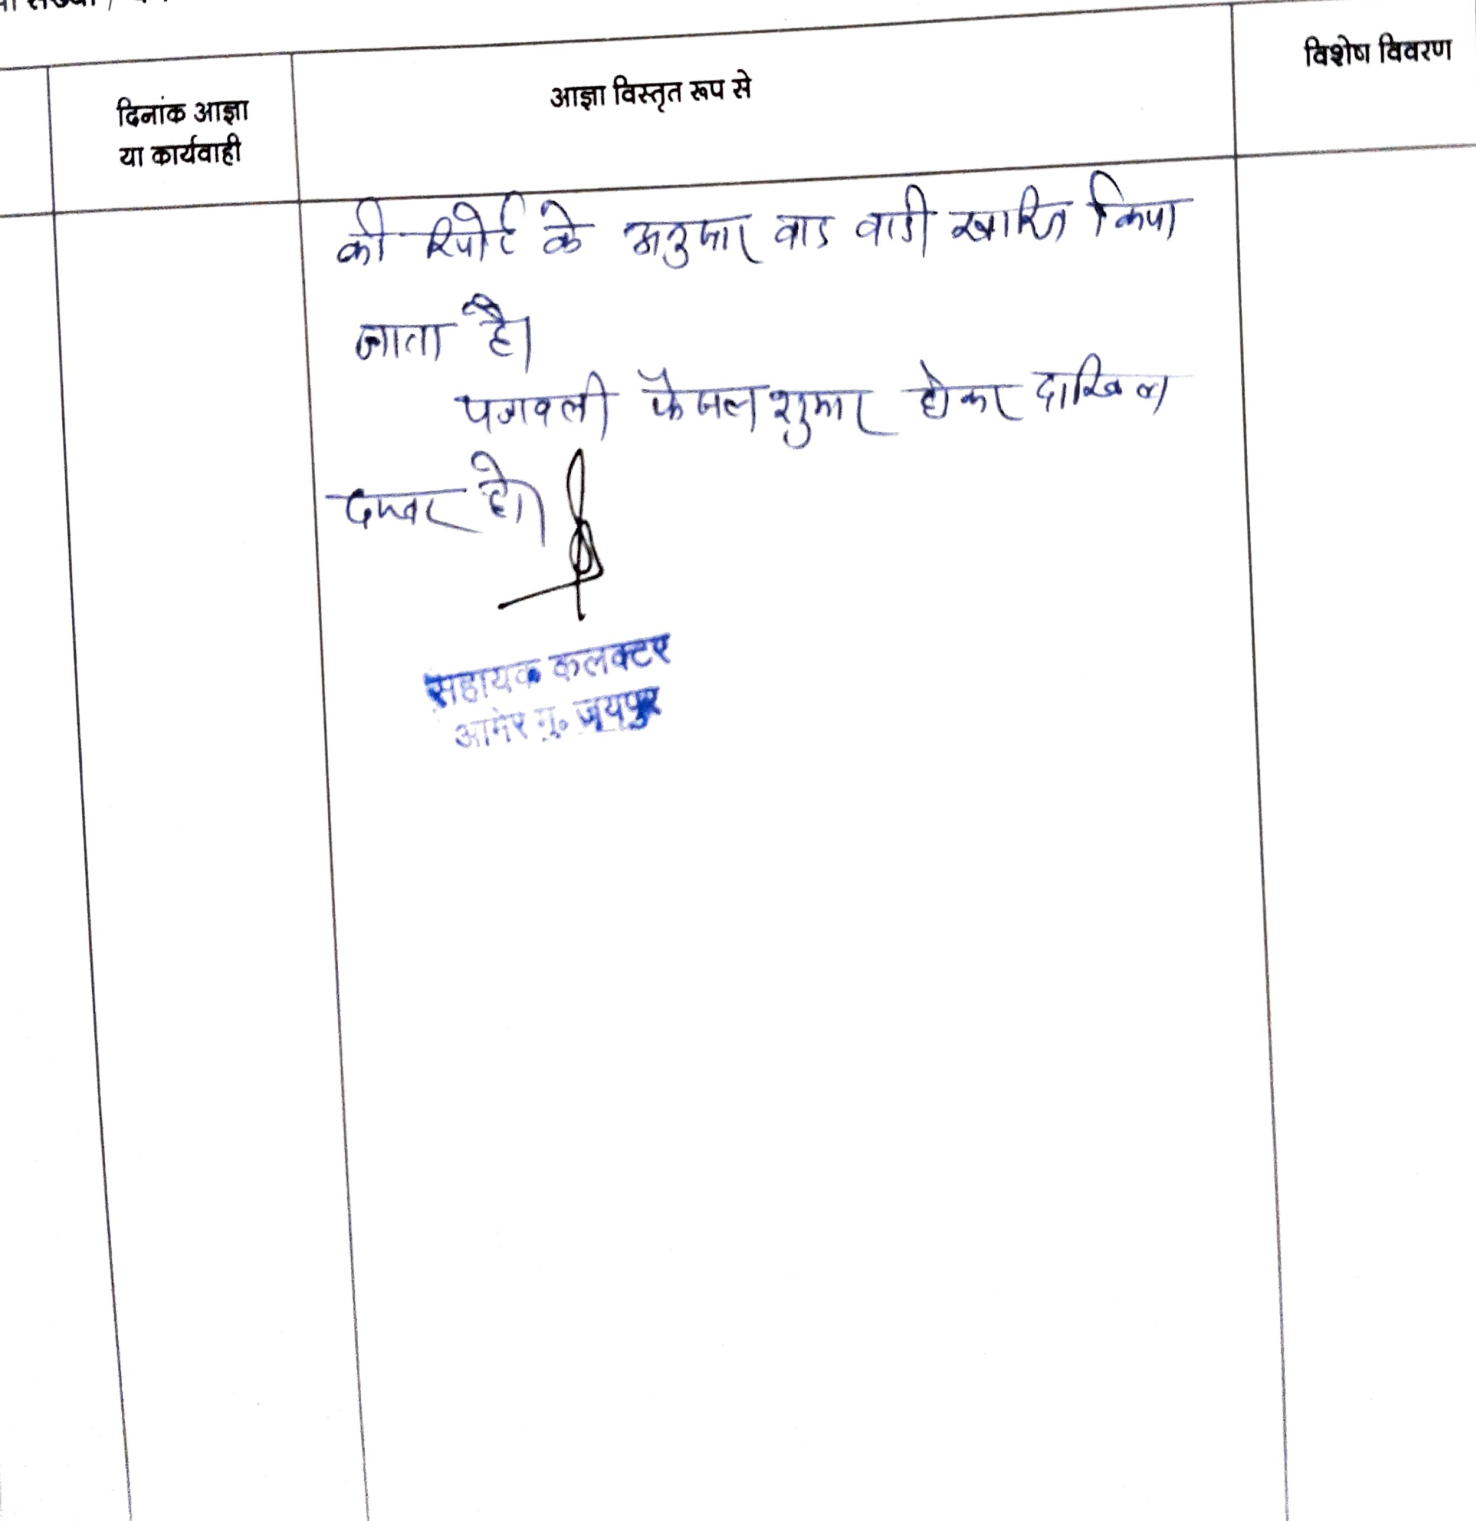 दिनांक आज्ञा
या कार्यवाही
आज्ञा विस्तृत रूप से
विशेष विवरण
की रिपोर्ट के अनुसार वाद वादी खारिज किया
जाता है।
पत्रावली फैसल शुमार होकर दाखिल
दफ्तर हो।
सहायक कलक्टर
आमेर मु० जयपुर